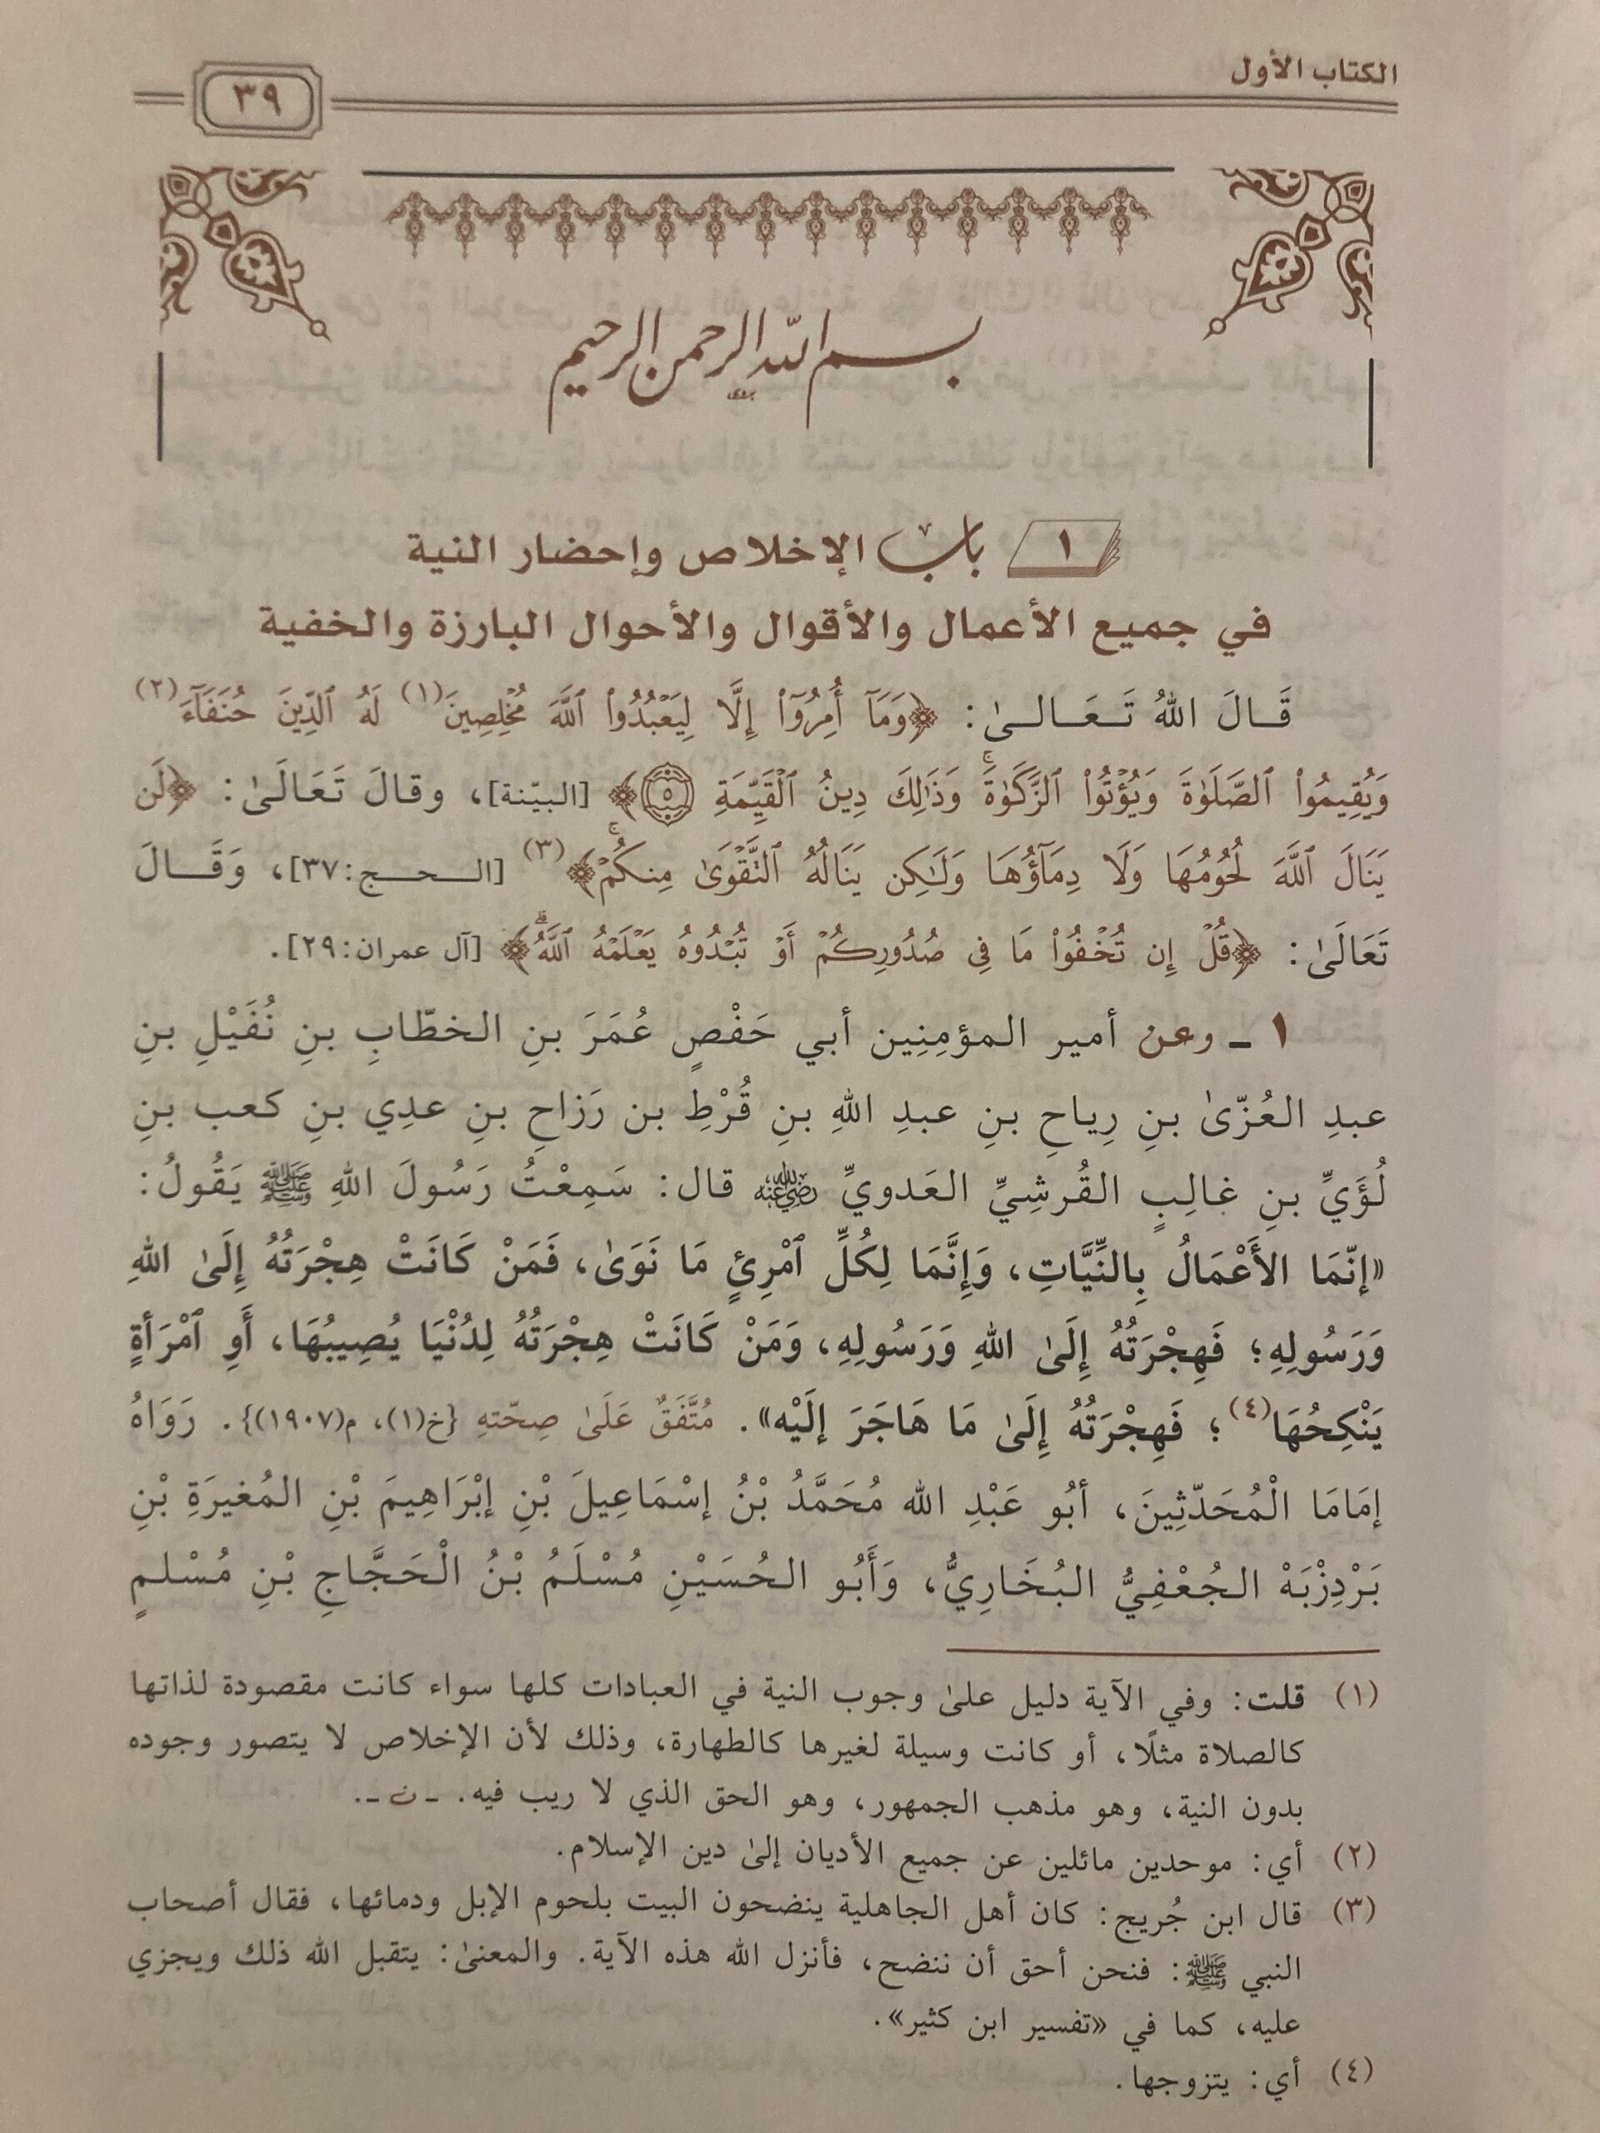 الكتاب الأول
٣٩
بسم الله الرحمن الرحيم
١ باب الإخلاص وإحضار النية
في جميع الأعمال والأقوال والأحوال البارزة والخفية
قَالَ اللهُ تَعَالىٰ: ﴿وَمَآ أُمِرُوٓا۟ إِلَّا لِيَعْبُدُوا۟ ٱللَّهَ مُخْلِصِينَ(١) لَهُ ٱلدِّينَ حُنَفَآءَ(٢)
وَيُقِيمُوا۟ ٱلصَّلَوٰةَ وَيُؤْتُوا۟ ٱلزَّكَوٰةَ ۚ وَذَٰلِكَ دِينُ ٱلْقَيِّمَةِ ٥﴾ [البيّنة]، وقالَ تَعَالَىٰ: ﴿لَن
يَنَالَ ٱللَّهَ لُحُومُهَا وَلَا دِمَآؤُهَا وَلَـٰكِن يَنَالُهُ ٱلتَّقْوَىٰ مِنكُمْ ۚ﴾(٣) [الحج:٣٧]، وَقَالَ
تَعَالَىٰ: ﴿قُلْ إِن تُخْفُوا۟ مَا فِى صُدُورِكُمْ أَوْ تُبْدُوهُ يَعْلَمْهُ ٱللَّهُ ۗ﴾ [آل عمران:٢٩].
١ ـ وعن أمير المؤمِنِين أبي حَفْصٍ عُمَرَ بنِ الخطّابِ بنِ نُفَيْلِ بنِ
عبدِ العُزّىٰ بنِ رِياحِ بنِ عبدِ اللهِ بنِ قُرْطِ بن رَزاحِ بنِ عدِي بنِ كعب بنِ
لُؤَيِّ بنِ غالِبٍ القُرشِيِّ العَدويِّ رضي الله عنه قال: سَمِعْتُ رَسُولَ اللهِ ﷺ يَقُولُ:
«إنّمَا الأَعْمَالُ بِالنِّيَّاتِ، وَإِنَّمَا لِكُلِّ ٱمْرِئٍ مَا نَوَىٰ، فَمَنْ كَانَتْ هِجْرَتُهُ إِلَىٰ اللهِ
وَرَسُولِهِ؛ فَهِجْرَتُهُ إِلَىٰ اللهِ وَرَسُولِهِ، وَمَنْ كَانَتْ هِجْرَتُهُ لِدُنْيَا يُصِيبُهَا، أَوِ ٱمْرَأةٍ
يَنْكِحُهَا(٤)؛ فَهِجْرَتُهُ إِلَىٰ مَا هَاجَرَ إلَيْه». مُتَّفَقٌ عَلَىٰ صِحّتهِ {خ(١)، م(١٩٠٧)}. رَوَاهُ
إمَامَا الْمُحَدّثِينَ، أبُو عَبْدِ الله مُحَمَّدُ بْنُ إسْمَاعِيلَ بْنِ إبْرَاهِيمَ بْنِ المُغيرَةِ بْنِ
بَرْدِزْبَهْ الجُعْفِيُّ البُخَارِيُّ، وَأَبُو الحُسَيْنِ مُسْلَمُ بْنُ الْحَجَّاجِ بْنِ مُسْلمٍ
(١) قلت: وفي الآية دليل علىٰ وجوب النية في العبادات كلها سواء كانت مقصودة لذاتها
كالصلاة مثلًا، أو كانت وسيلة لغيرها كالطهارة، وذلك لأن الإخلاص لا يتصور وجوده
بدون النية، وهو مذهب الجمهور، وهو الحق الذي لا ريب فيه. ـ ن ـ.
(٢) أي: موحدين مائلين عن جميع الأديان إلىٰ دين الإسلام.
(٣) قال ابن جُريج: كان أهل الجاهلية ينضحون البيت بلحوم الإبل ودمائها، فقال أصحاب
النبي ﷺ: فنحن أحق أن ننضح، فأنزل الله هذه الآية. والمعنىٰ: يتقبل الله ذلك ويجزي
عليه، كما في «تفسير ابن كثير».
(٤) أي: يتزوجها.